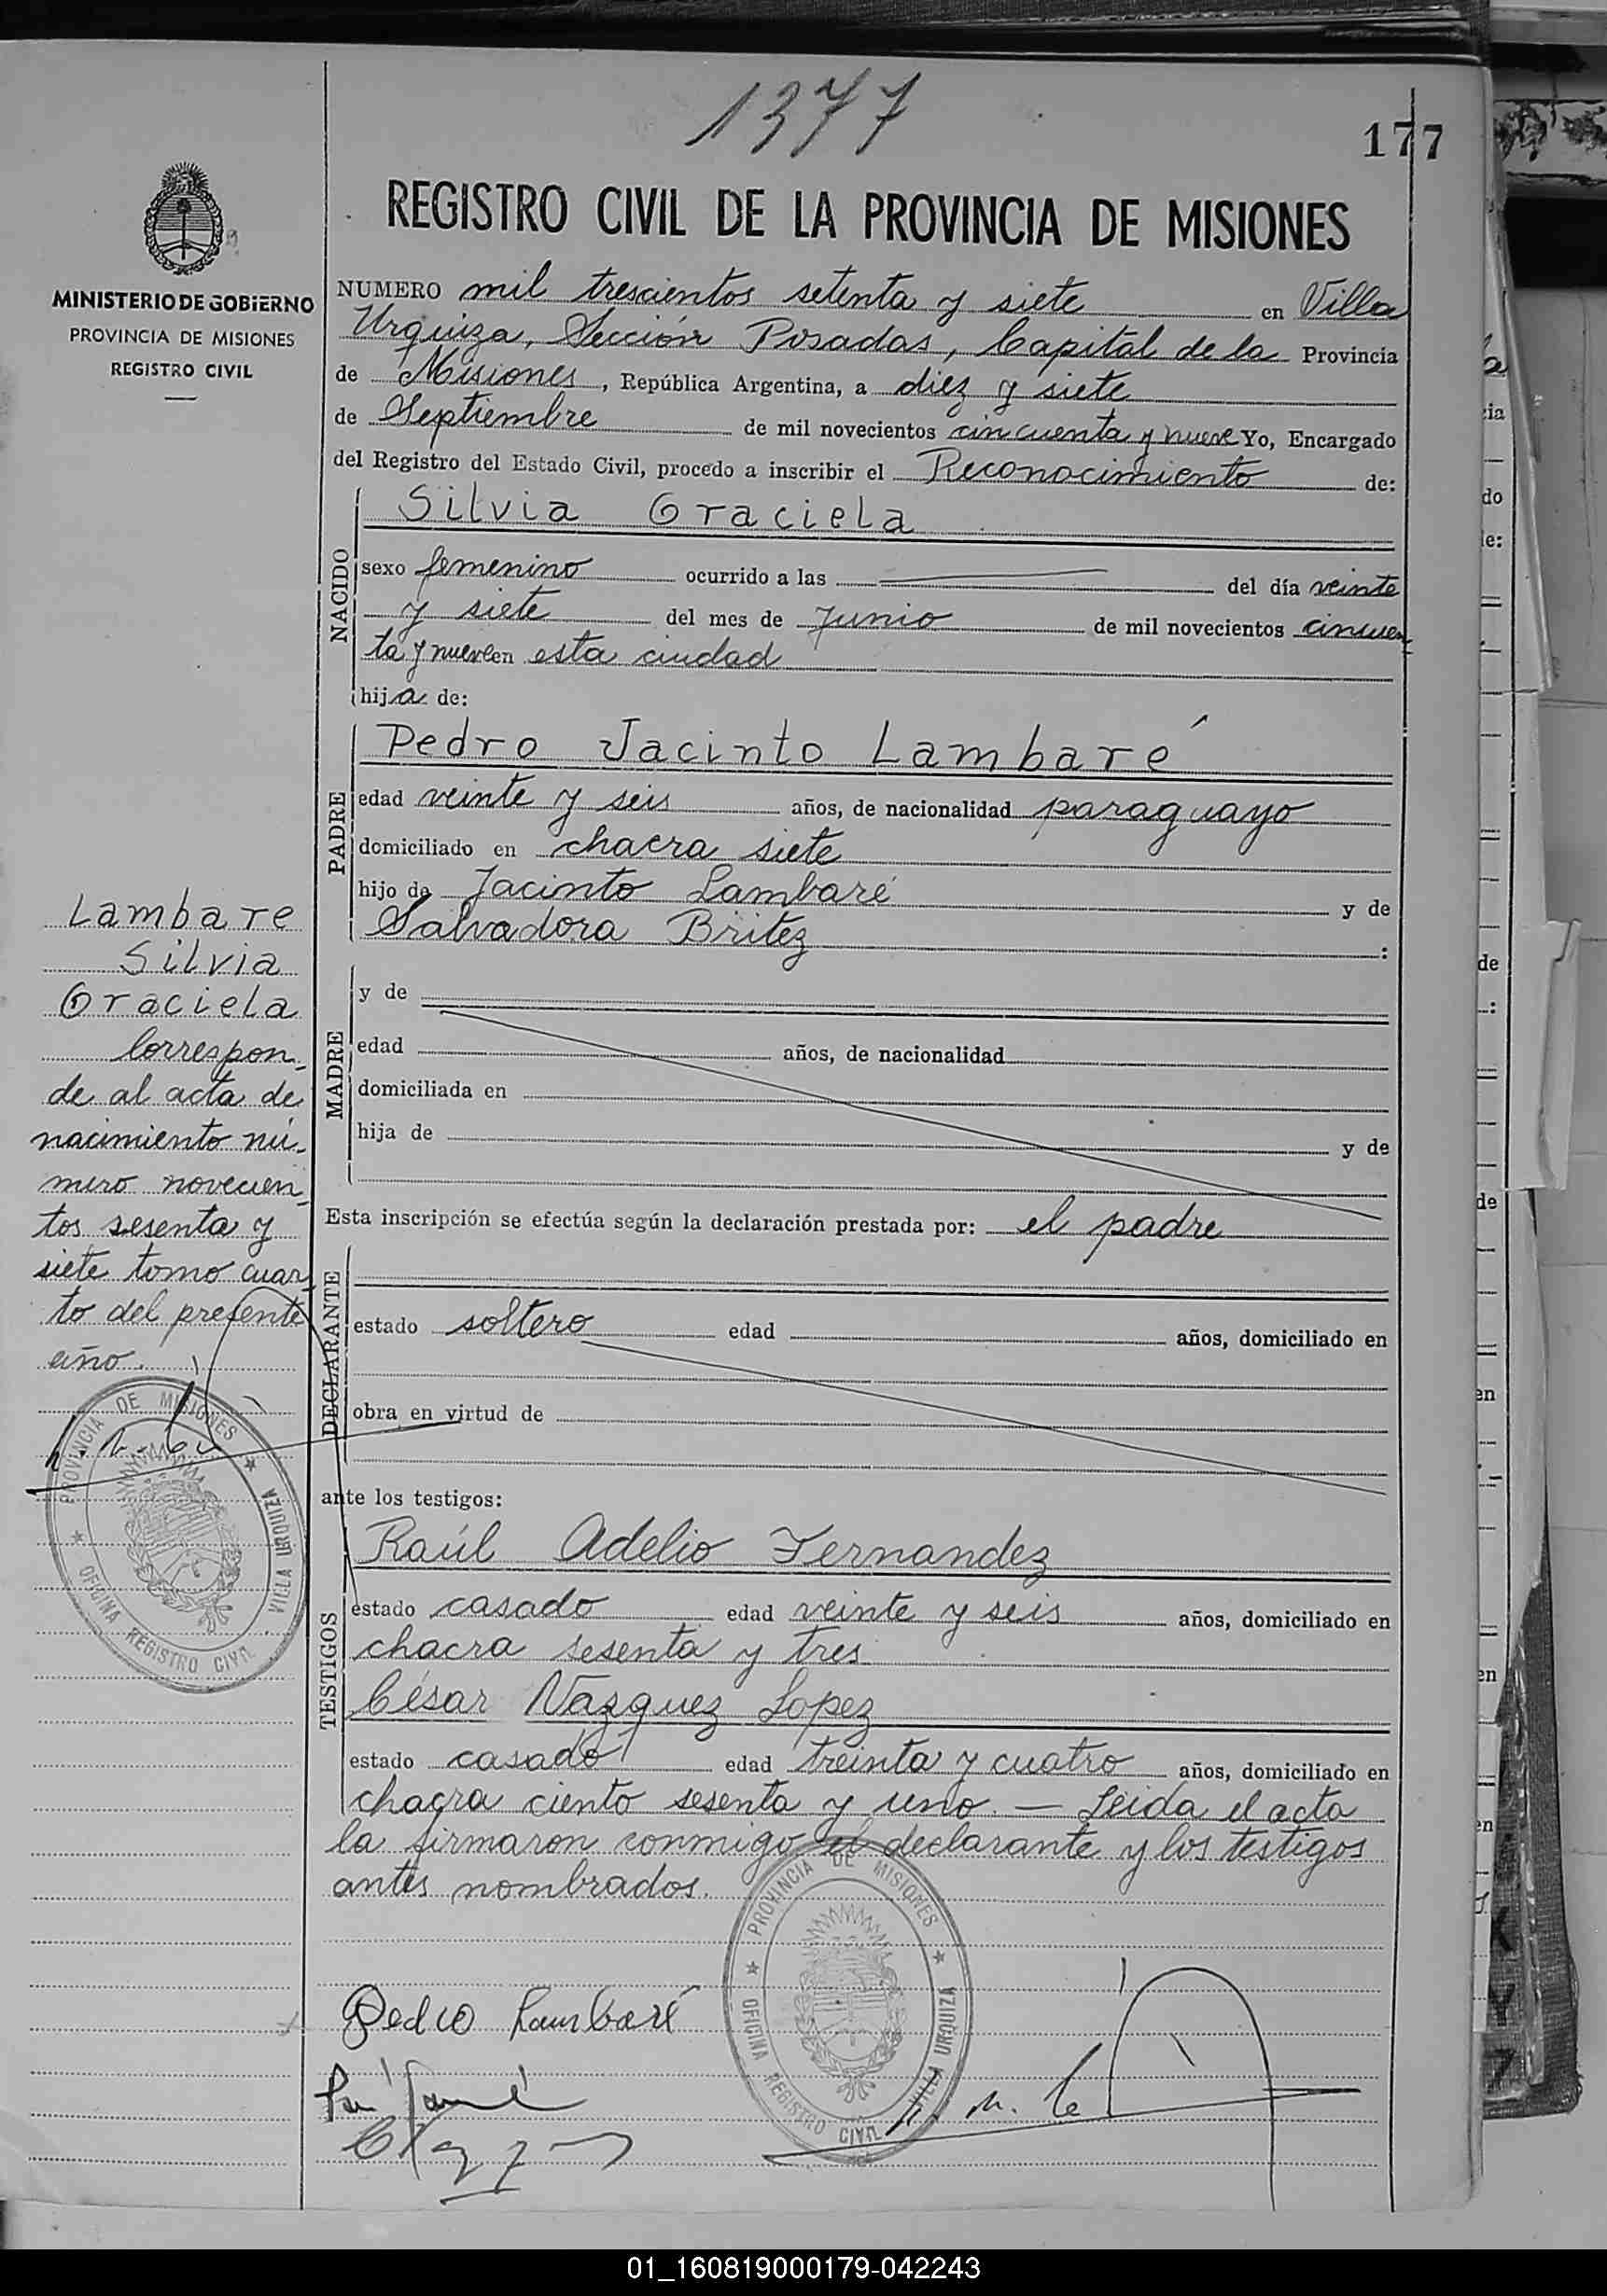 1377
177
MINISTERIO DE GOBIERNO
PROVINCIA DE MISIONES
REGISTRO CIVIL
REGISTRO CIVIL DE LA PROVINCIA DE MISIONES
NUMERO mil trescientos setenta y siete en Villa
Urquiza, Sección Posadas, Capital de la Provincia
de Misiones, República Argentina, a diez y siete
de Septiembre de mil novecientos cincuenta y nueve Yo, Encargado
del Registro del Estado Civil, procedo a inscribir el Reconocimiento de:
NACIDO
Silvia Graciela
sexo femenino ocurrido a las del día veinte
y siete del mes de Junio de mil novecientos cincuen
ta y nueve en esta ciudad
hija de:
PADRE
Pedro Jacinto Lambaré
edad veinte y seis años, de nacionalidad paraguayo
domiciliado en chacra siete
hijo de Jacinto Lambaré y de
Salvadora Britez :
MADRE
y de
edad años, de nacionalidad
domiciliada en
hija de y de
Esta inscripción se efectúa según la declaración prestada por: el padre
DECLARANTE
estado soltero edad años, domiciliado en
obra en virtud de
ante los testigos:
TESTIGOS
Raúl Adelio Fernandez
estado casado edad veinte y seis años, domiciliado en
chacra sesenta y tres
César Vazquez Lopez
estado casado edad treinta y cuatro años, domiciliado en
chacra ciento sesenta y uno. — Leida el acta
la firmaron conmigo el declarante y los testigos
antes nombrados.
Pedro Lambaré
PROVINCIA DE MISIONES
OFICINA REGISTRO CIVIL VILLA URQUIZA
Lambare
Silvia
Graciela
Correspon-
de al acta de
nacimiento nú-
mero novecien
tos sesenta y
siete tomo cuar
to del presente
año.
PROVINCIA DE MISIONES
OFICINA REGISTRO CIVIL VILLA URQUIZA
cia
do
de:
de
:
de
en
en
en
01_160819000179-042243